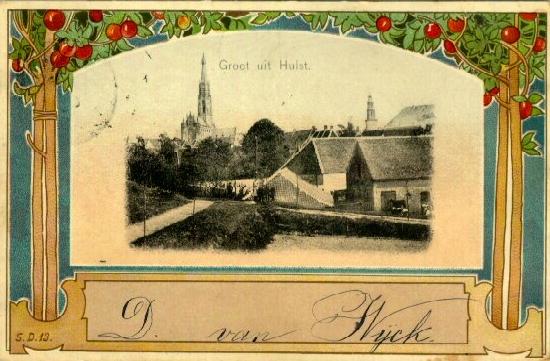 Groet uit Hulst.
D. van Wyck.
S.D.13.